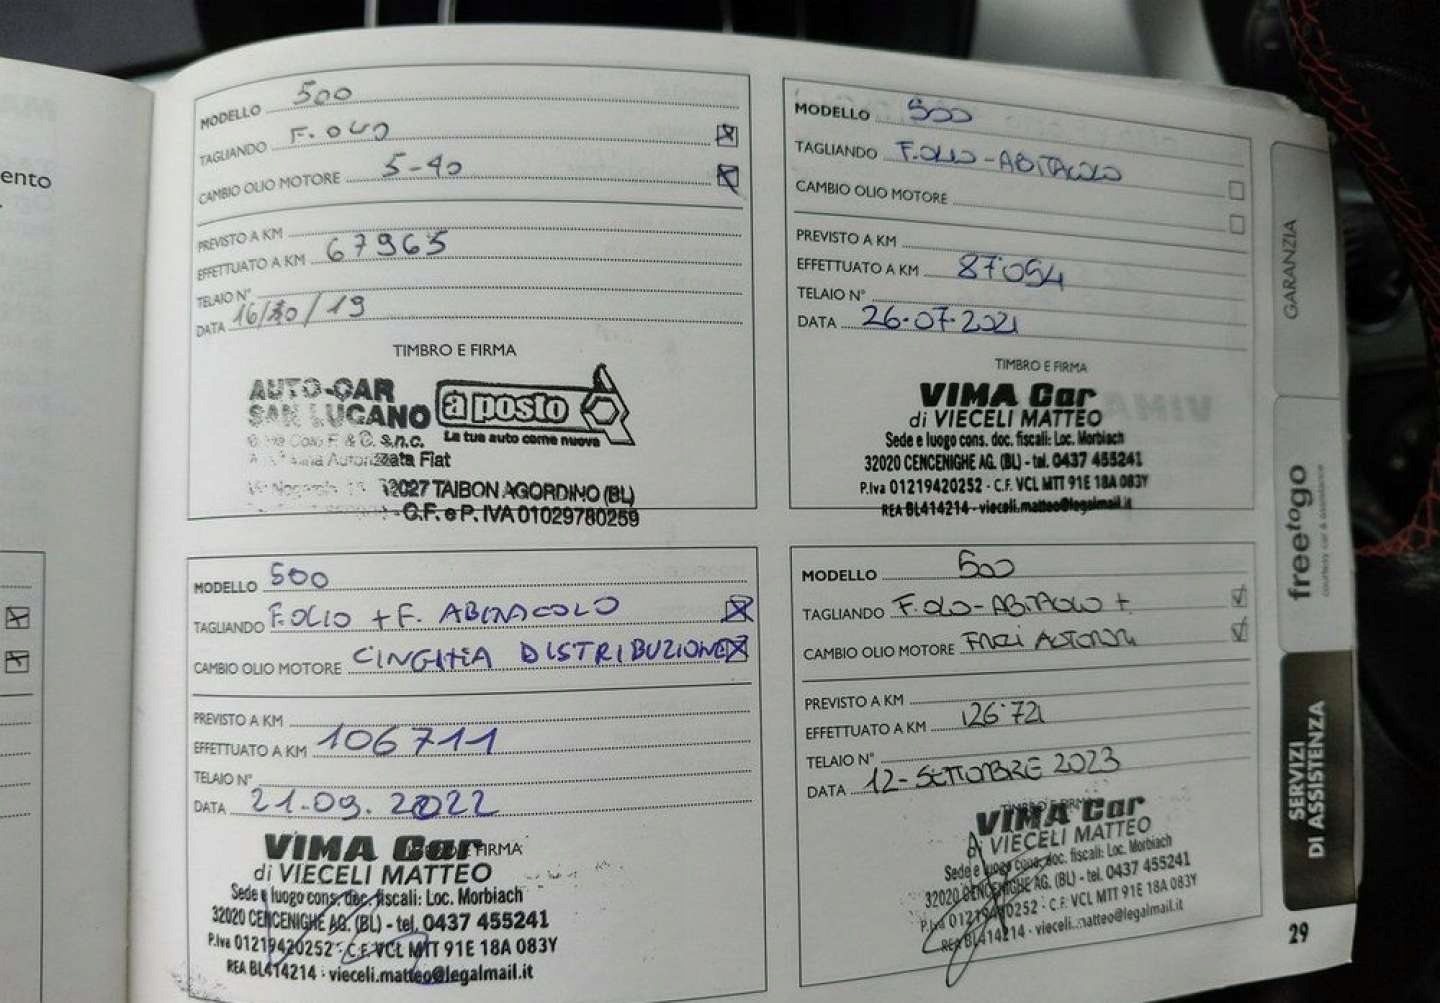 ento
MODELLO 500
TAGLIANDO F. OLIO
CAMBIO OLIO MOTORE 5-40
PREVISTO A KM
EFFETTUATO A KM 67965
TELAIO N°
DATA 16/10/19
TIMBRO E FIRMA
AUTO-CAR
SAN LUCANO
a posto
La tua auto come nuova
F. & C. s.n.c.
Autorizzata Fiat
12027 TAIBON AGORDINO (BL)
C.F. e P. IVA 01029780259
MODELLO 500
TAGLIANDO F. OLIO - ABITACOLO
CAMBIO OLIO MOTORE
PREVISTO A KM
EFFETTUATO A KM 87'094
TELAIO N°
DATA 26-07-2021
TIMBRO E FIRMA
VIMA Car
di VIECELI MATTEO
Sede e luogo cons. doc. fiscali: Loc. Morbiach
32020 CENCENIGHE AG. (BL) - tel. 0437 455241
P.Iva 01219420252 - C.F. VCL MTT 91E 18A 083Y
REA BL414214 - vieceli.matteo@legalmail.it
MODELLO 500
TAGLIANDO F. OLIO + F. ABITACOLO
CAMBIO OLIO MOTORE CINGHIA DISTRIBUZIONE
PREVISTO A KM
EFFETTUATO A KM 106711
TELAIO N°
DATA 21.09.2022
FIRMA
VIMA Car
di VIECELI MATTEO
Sede e luogo cons. doc. fiscali: Loc. Morbiach
32020 CENCENIGHE AG. (BL) - tel. 0437 455241
P.Iva 01219420252 - C.F. VCL MTT 91E 18A 083Y
REA BL414214 - vieceli.matteo@legalmail.it
MODELLO 500
TAGLIANDO F. OLIO - ABITACOLO +
CAMBIO OLIO MOTORE
PREVISTO A KM
EFFETTUATO A KM 126'721
TELAIO N°
DATA 12 - SETTEMBRE 2023
TIMBRO E FIRMA
VIMA Car
di VIECELI MATTEO
Sede e luogo cons. doc. fiscali: Loc. Morbiach
32020 CENCENIGHE AG. (BL) - tel. 0437 455241
P.Iva 01219420252 - C.F. VCL MTT 91E 18A 083Y
REA BL414214 - vieceli.matteo@legalmail.it
GARANZIA
freetogo
courtesy car & assistance
SERVIZI
DI ASSISTENZA
29